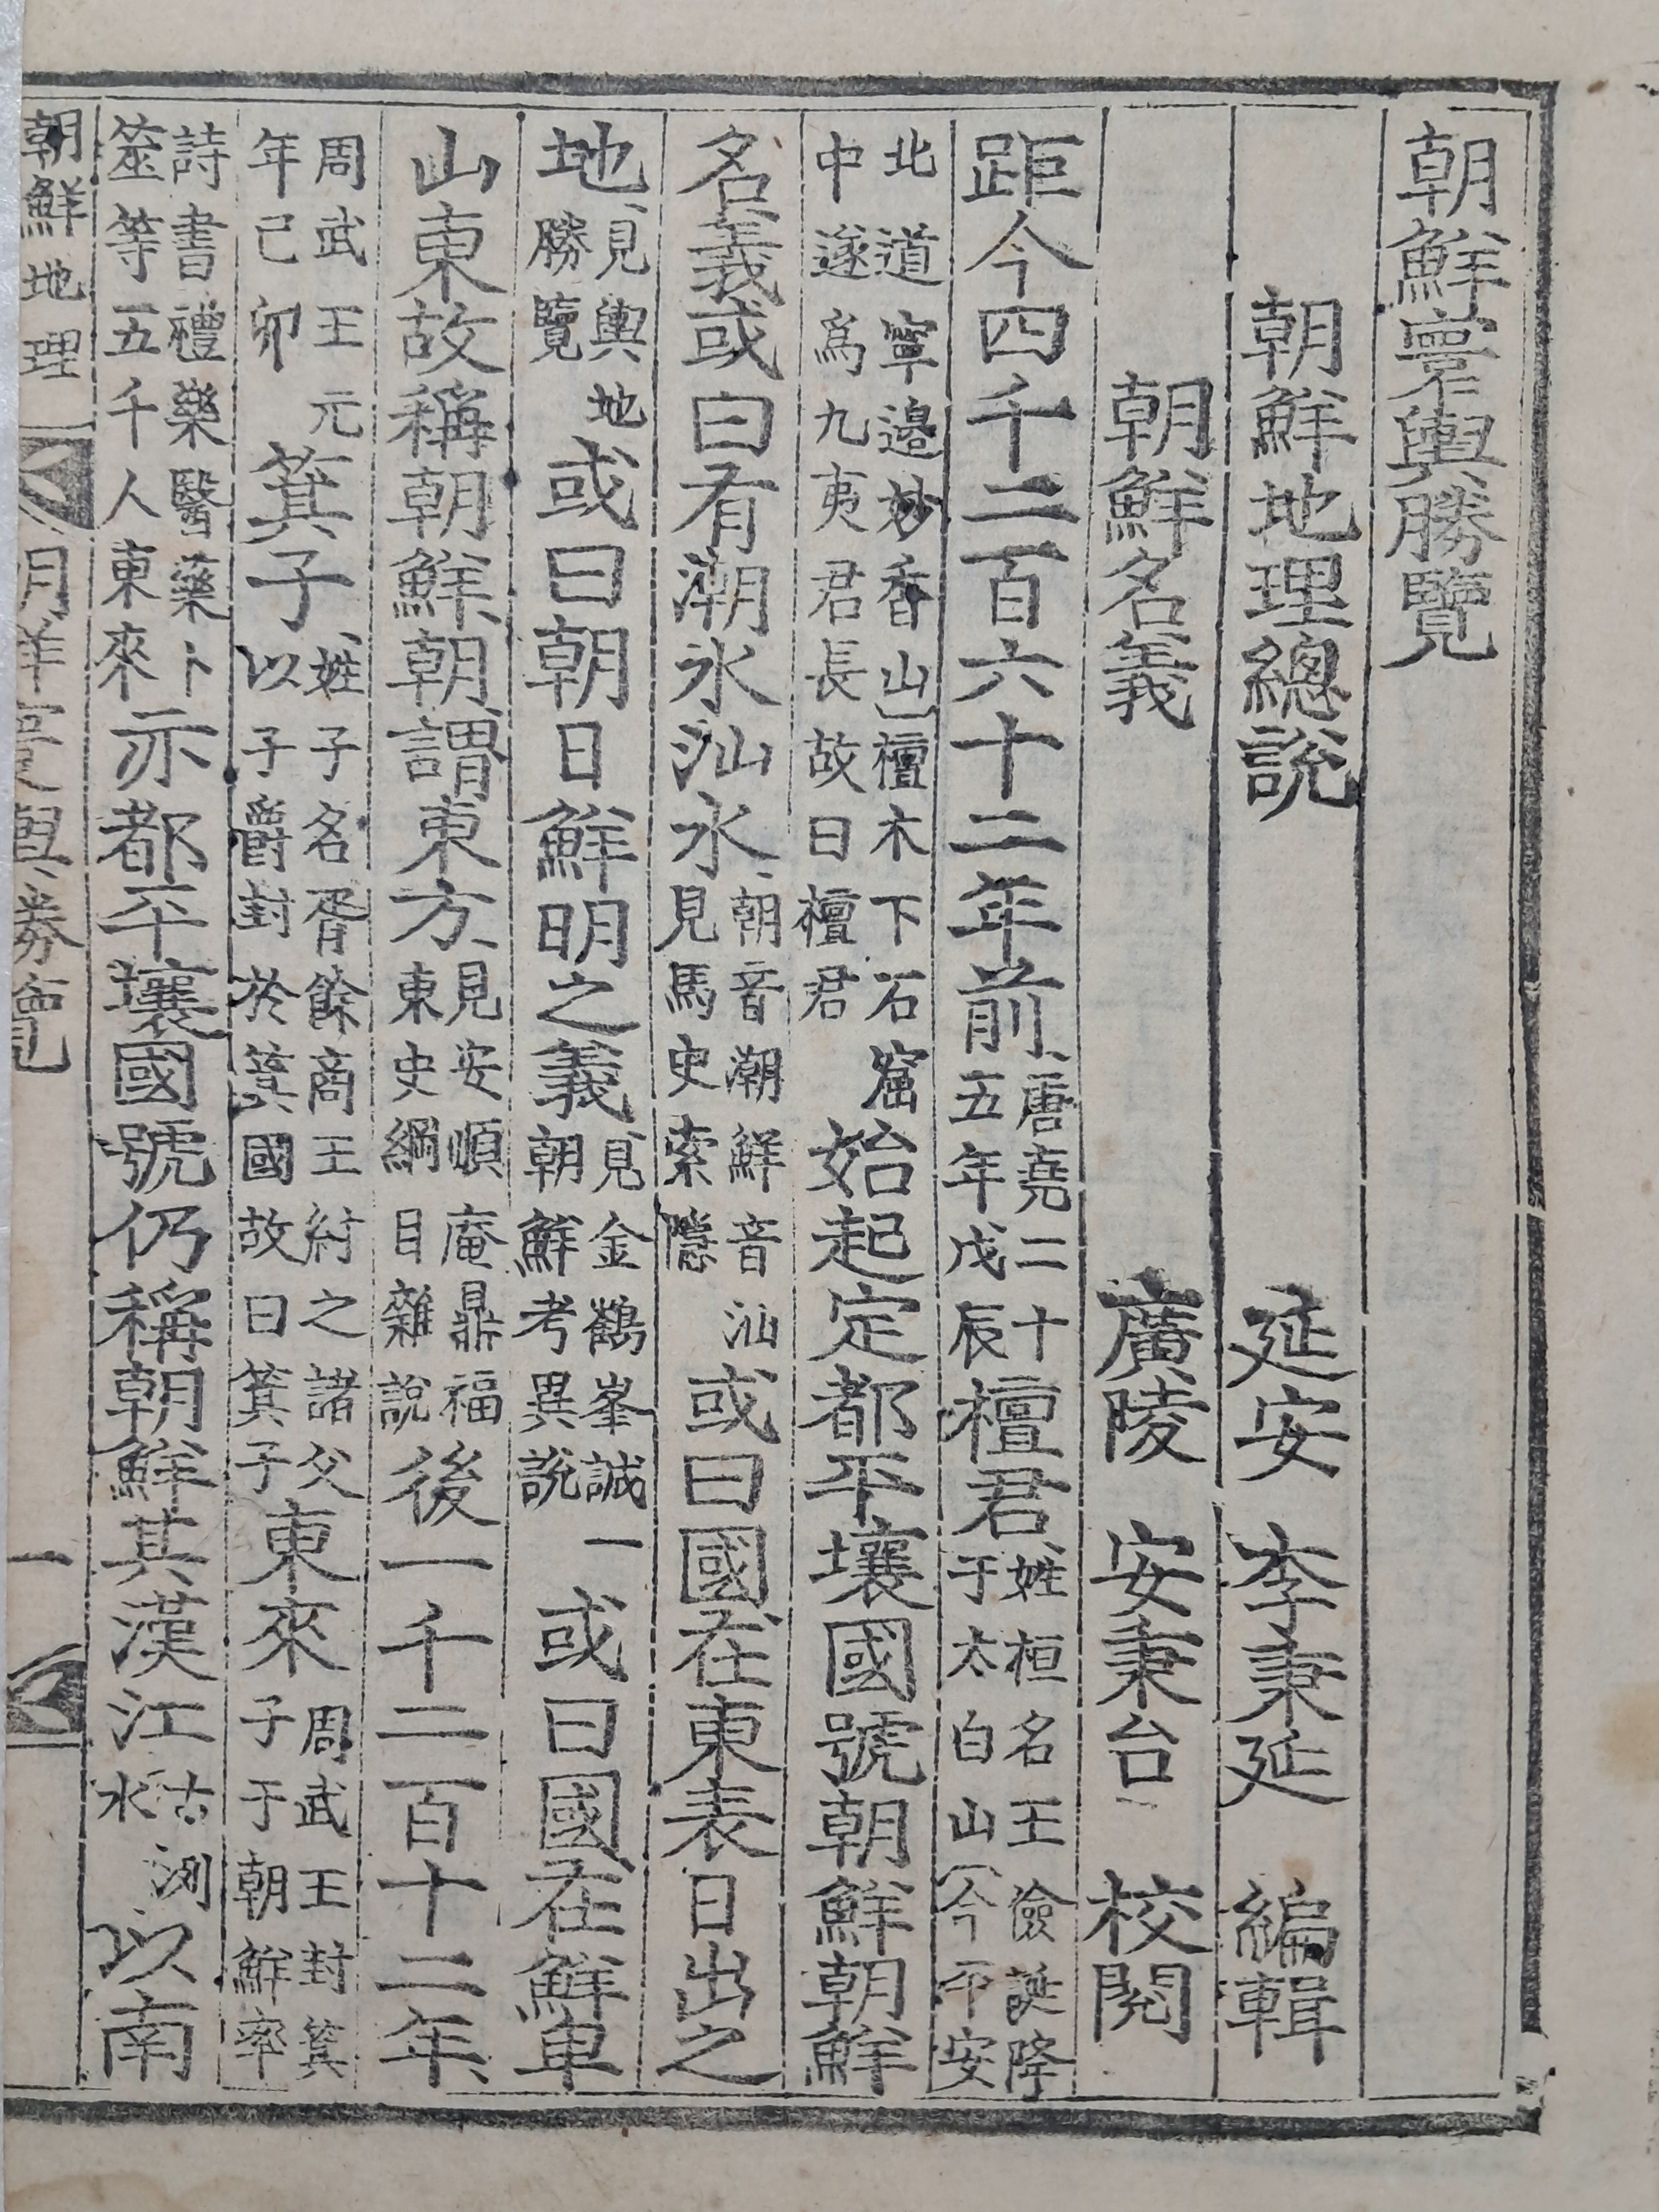 朝鮮寰輿勝覽
朝鮮地理總說 延安 李秉延 編輯
朝鮮名義 廣陵 安秉台 校閱
距今四千二百六十二年前、唐堯二十五年戊辰檀君、姓桓名王儉誕降于太白山(今平安
北道寧邊妙香山)檀木下石窟中遂爲九夷君長故曰檀君始起定都平壤國號朝鮮朝鮮
名義或曰有潮水汕水、朝音潮鮮音汕見馬史索隱或曰國在東表日出之
地、見輿地勝覽或曰朝日鮮明之義、見金鶴峯誠一朝鮮考異說或曰國在鮮卑
山東故稱朝鮮、朝謂東方、見安順庵鼎福東史綱目雜說後一千二百十二年、
周武王元年己卯箕子、姓子名胥餘商王紂之諸父以子爵封於箕國故曰箕子東來周武王封箕子于朝鮮率
詩書禮樂醫藥卜筮等五千人東來亦都平壤國號仍稱朝鮮其漢江古洌水以南
朝鮮地理 朝鮮寰輿勝覽 一